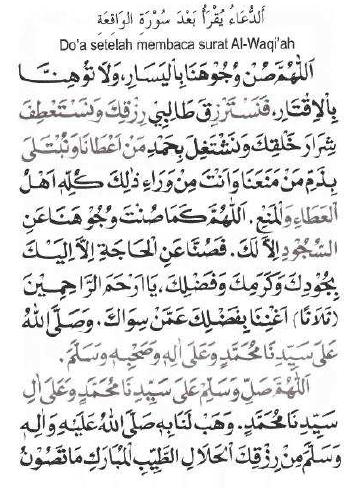 اَلدُّعَاءُ يُقْرَأُ بَعْدَ سُوْرَةِ الْوَاقِعَةِ
Do'a setelah membaca surat Al-Waqi'ah
اَللّٰهُمَّ صُنْ وُجُوْهَنَا بِالْيَسَارِ، وَلَا تُوْهِنَّا
بِالْاِقْتَارِ، فَنَسْتَرْزِقَ طَالِبِيْ رِزْقِكَ وَنَسْتَعْطِفَ
شِرَارَ خَلْقِكَ وَنَشْتَغِلَ بِحَمْدِ مَنْ اَعْطَانَا وَنُبْتَلٰى
بِذَمِّ مَنْ مَنَعَنَا وَاَنْتَ مِنْ وَرَاءِ ذٰلِكَ كُلِّهِ اَهْلُ
الْعَطَاءِ وَالْمَنْعِ. اَللّٰهُمَّ كَمَا صُنْتَ وُجُوْهَنَا عَنِ
السُّجُوْدِ اِلَّا لَكَ. فَصُنَّا عَنِ الْحَاجَةِ اِلَّا اِلَيْكَ
بِجُوْدِكَ وَكَرَمِكَ وَفَضْلِكَ، يَا اَرْحَمَ الرَّاحِمِيْنَ
(ثَلَاثًا) اَغْنِنَا بِفَضْلِكَ عَمَّنْ سِوَاكَ. وَصَلَّى اللّٰهُ
عَلٰى سَيِّدِنَا مُحَمَّدٍ وَعَلٰى اٰلِهِ وَصَحْبِهِ وَسَلَّمَ.
اَللّٰهُمَّ صَلِّ وَسَلِّمْ عَلٰى سَيِّدِنَا مُحَمَّدٍ وَعَلٰى اٰلِ
سَيِّدِنَا مُحَمَّدٍ. وَهَبْ لَنَا بِهِ صَلَّى اللّٰهُ عَلَيْهِ وَاٰلِهِ
وَسَلَّمَ مِنْ رِزْقِكَ الْحَلَالِ الطَّيِّبِ الْمُبَارَكِ مَا تَصُوْنُ